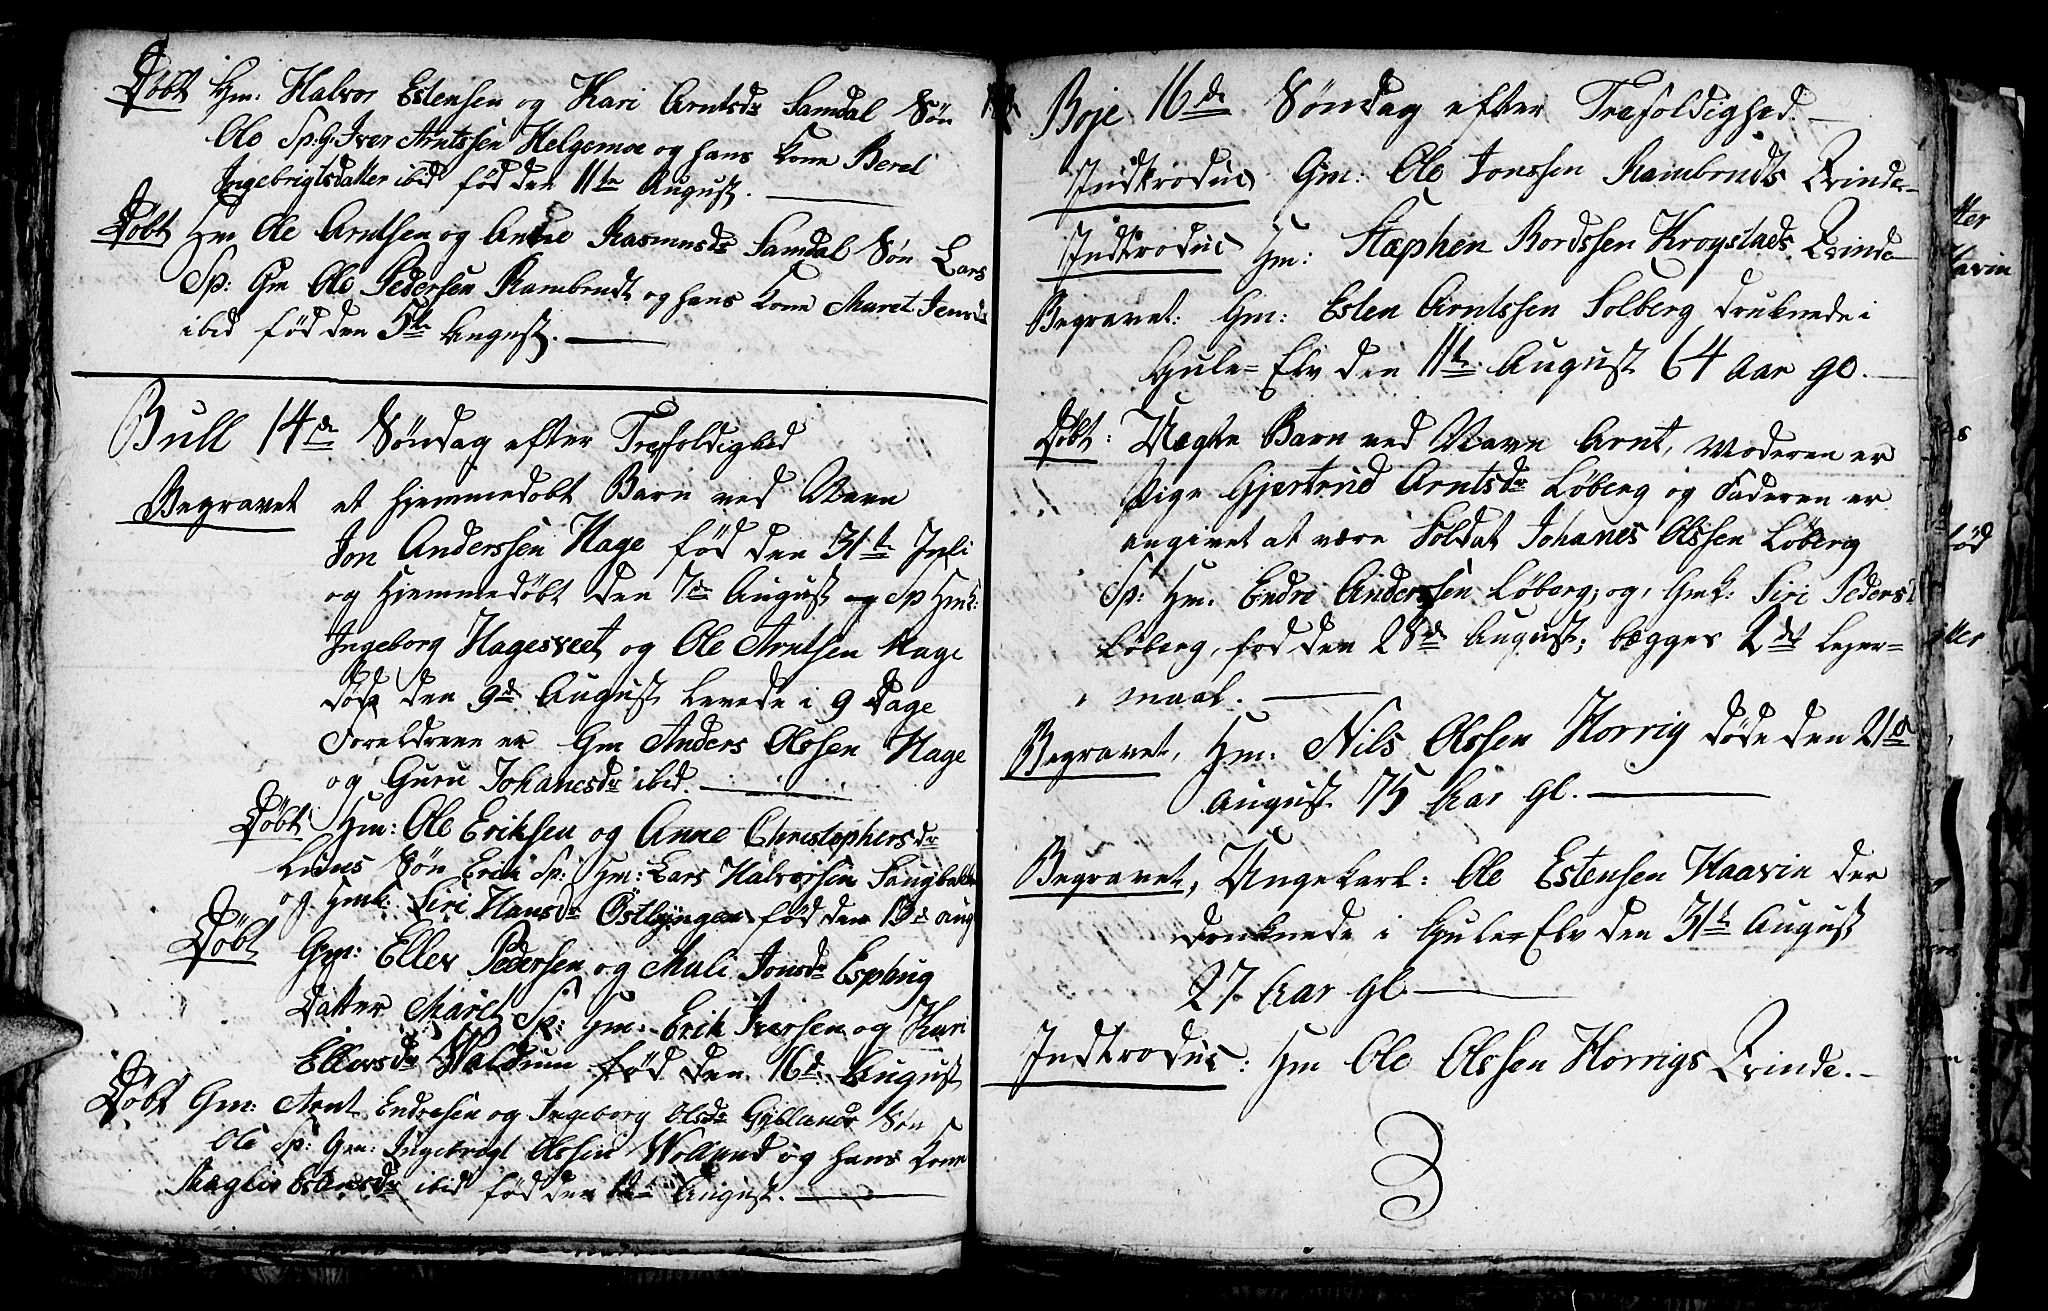 Døbt Hm: Halvor Estensen og Kari Arntsdr Samdal Søn
Ole Sp: G: Iver Arntssen Helgemoe og hans Kone Berel
Ingebrigtsdatter ibid fød den 11te August.
Døbt Hm Ole Arntsen og Anne Rasmusdr Samdal Søn Lars
Sp: Gm Ole Pedersen Rambrodt og hans Kone Maret Jensdr
ibid fød den 5te August.
Bull 14de Søndag efter Trefoldighed
Begravet et hjemmedøbt Barn ved Navn
Jon Anderssen Hage fød den 31te Juli
og Hjemmedøbt den 7de August og Sp Hmk:
Ingeborg Hagesveet og Ole Arntsen Hage
død den 9de August levede i 9 Dage
Foreldrene er Gm Anders Olssen Hage
og Guru Johanesdr ibid.
Døbt Hm: Ole Eriksen og Anne Christophersdr
Liens Søn Erik Sp: Hm: Lars Halvorsen
og Hmk: Siri Hansdr Østlyngen fød den 13de Aug
Døbt Gm: Ellev Pedersen og Mali Jonsdr Esphug
Datter Maret Sp: Gm: Erik Iversen og Kari
Ellevsdr Woldum fød den 16de August
Døbt Gm: Arnt Endresen og Ingeborg Olsdr Gyllandr Søn
Ole Sp: Gm: Ingebrigt Olssen Wollund og hans Kone
Estensdr ibid fød den August.
Boje 16de Søndag efter Trefoldighed.
Indtrodus Gm: Ole Jonssen Rambrodts Qvinde
Indtrodus Hm: Stæphen Bordssen Krogstads Qvinde
Begravet: Gm: Esten Arntssen Solberg druknede i
Gule=Elv den 11te August 64 Aar gl.
Døbt: Uægte Barn ved Navn Arnt, Moderen er
Pige Gjertrud Arntsdr Løberg og Faderen er
angivet at være Soldat Johanes Olssen Løberg
Sp: Hm. Endre Anderssen Løberg, og, Gmk: Siri Peders
Løberg, fød den 28de August; begges 2det Lejer=
maal.
Begravet, Hm: Nils Olssen Horrig døde den 21de
August 75 Aar gl.
Begravet, Ungekarl: Ole Estensen Haavin der
druknede i Gule=Elv den 31te August
27 Aar gl.
Indtrodus: Hm Ole Olssen Horrigs Qvinde.